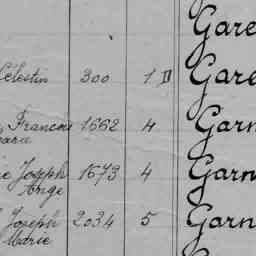 Gare
Célestin 300 1 II Gare
François 1662 4 Garn
Marie
Joseph 1673 4 Garn
Ange
Joseph 2034 5 Garn
Marie